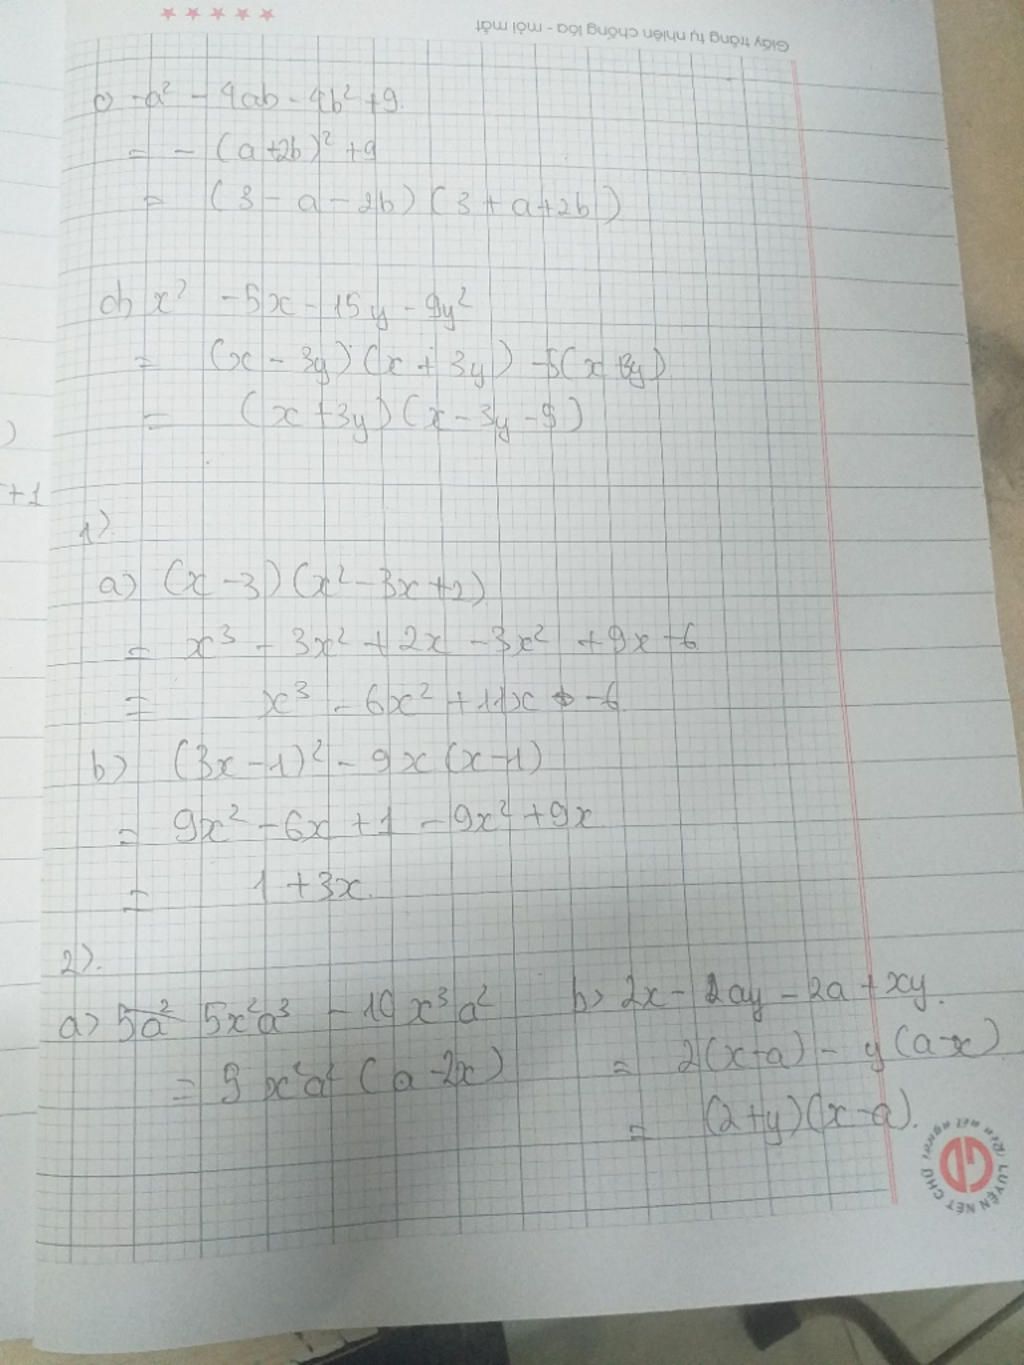 Giấy trắng tự nhiên chống lóa - mỏi mắt
c) -a² - 4ab - 4b² + 9.
= - (a+2b)² + 9
= (3 - a - 2b) (3 + a + 2b)
d) x² - 5x - 15y - 9y²
= (x - 3y) (x + 3y) - 5(x + 3y)
= (x + 3y) (x - 3y - 5)
)
+1
1).
a) (x - 3) (x² - 3x + 2)
= x³ - 3x² + 2x - 3x² + 9x - 6
= x³ - 6x² + 11x - 6
b) (3x - 1)² - 9x (x - 1)
= 9x² - 6x + 1 - 9x² + 9x
= 1 + 3x.
2).
a) 5x²a³ - 10x³a²
= 5 x²a² (a - 2x)
b) 2x - ay - 2a + xy.
= 2(x - a) - y (a - x)
= (2 + y) (x - a).
LUYỆN NÉT CHỮ
RÈN NẾT NGƯỜI